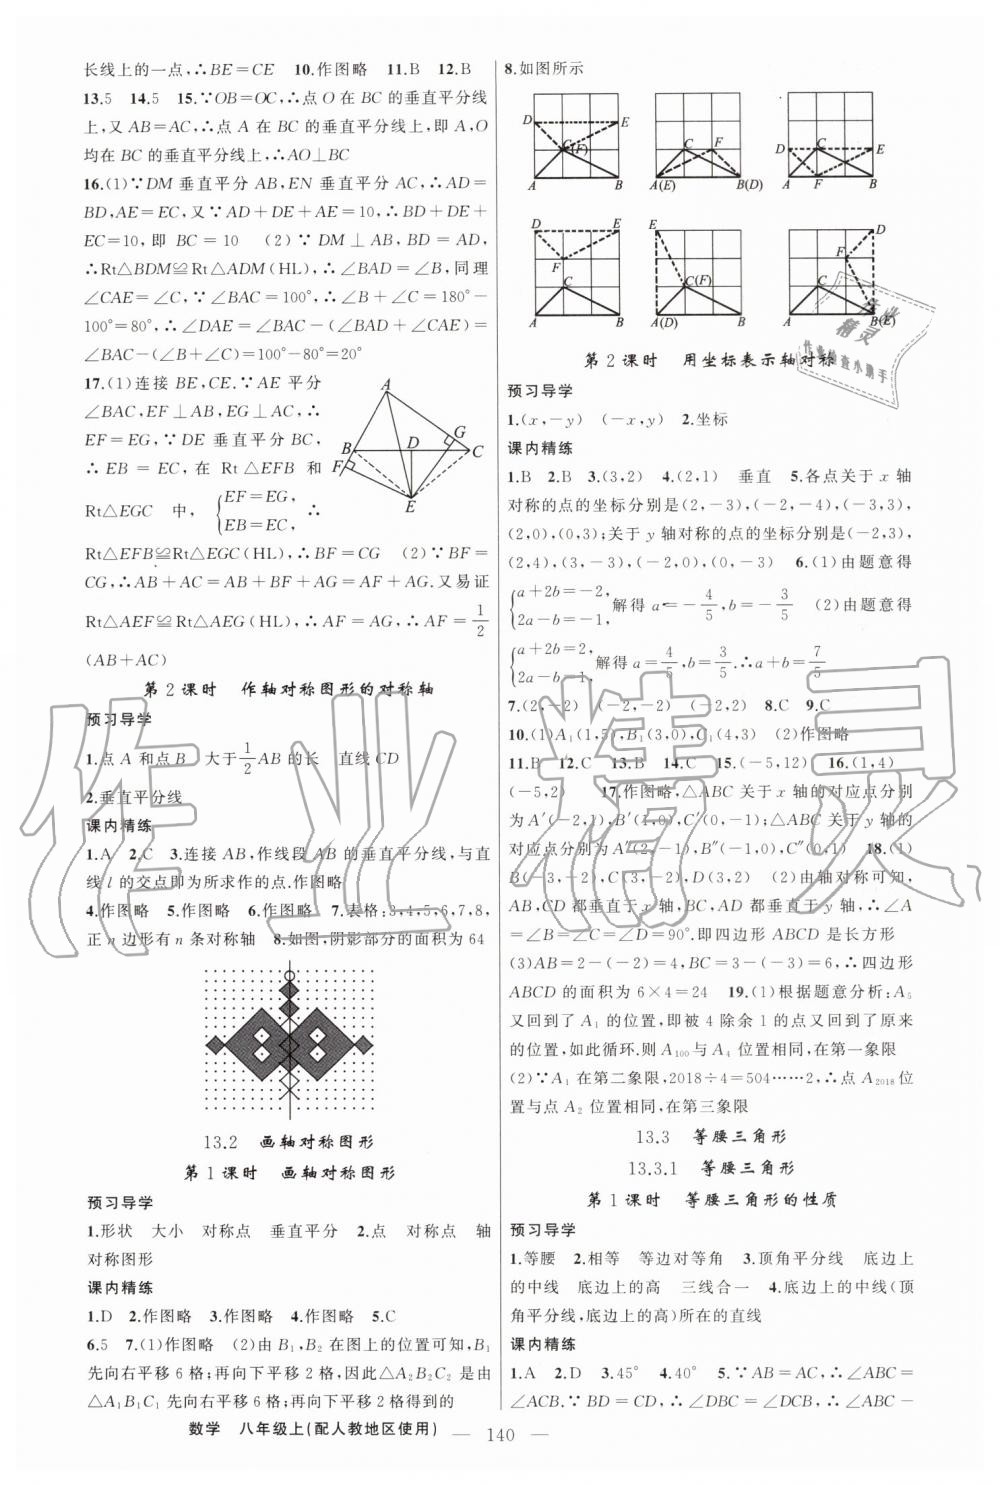 长线上的一点,∴BE=CE　10.作图略　11.B　12.B
13.5　14.5　15.∵OB=OC,∴点 O 在 BC 的垂直平分线
上,又 AB=AC,∴点 A 在 BC 的垂直平分线上,即 A,O
均在 BC 的垂直平分线上,∴AO⊥BC
16.(1)∵DM 垂直平分 AB,EN 垂直平分 AC,∴AD=
BD,AE=EC,又∵AD+DE+AE=10,∴BD+DE+
EC=10,即 BC=10　(2)∵DM⊥AB,BD=AD,
∴Rt△BDM≌Rt△ADM(HL),∴∠BAD=∠B,同理
∠CAE=∠C,∵∠BAC=100°,∴∠B+∠C=180°-
100°=80°,∴∠DAE=∠BAC-(∠BAD+∠CAE)=
∠BAC-(∠B+∠C)=100°-80°=20°
17.(1)连接 BE,CE.∵AE 平分
∠BAC,EF⊥AB,EG⊥AC,∴
EF=EG,∵DE 垂直平分 BC,
∴EB=EC,在 Rt△EFB 和
Rt△EGC 中, {EF=EG, EB=EC, ∴
A
B
D
G
C
F
E
Rt△EFB≌Rt△EGC(HL),∴BF=CG　(2)∵BF=
CG,∴AB+AC=AB+BF+AG=AF+AG.又易证
Rt△AEF≌Rt△AEG(HL),∴AF=AG,∴AF=1/2
(AB+AC)
第 2 课时　作轴对称图形的对称轴
预习导学
1.点 A 和点 B　大于1/2AB 的长　直线 CD
2.垂直平分线
课内精练
1.A　2.C　3.连接 AB,作线段 AB 的垂直平分线,与直
线 l 的交点即为所求作的点.作图略
4.作图略　5.作图略　6.作图略　7.表格:3,4,5,6,7,8,
正 n 边形有 n 条对称轴　8.如图,阴影部分的面积为 64
13.2　画轴对称图形
第 1 课时　画轴对称图形
预习导学
1.形状　大小　对称点　垂直平分　2.点　对称点　轴
对称图形
课内精练
1.D　2.作图略　3.作图略　4.作图略　5.C
6.5　7.(1)作图略　(2)由 B₁,B₂ 在图上的位置可知,B₁
先向右平移 6 格;再向下平移 2 格,因此△A₂B₂C₂ 是由
△A₁B₁C₁ 先向右平移 6 格;再向下平移 2 格得到的
8.如图所示
D E C(F) A B
C F A(E) B(D)
D C E A F B
D E F C A B
E C(F) A(D) B
D F C A B(E)
第 2 课时　用坐标表示轴对称
预习导学
1.(x,-y)　(-x,y)　2.坐标
课内精练
1.B　2.B　3.(3,2)　4.(2,1)　垂直　5.各点关于 x 轴
对称的点的坐标分别是(2,-3),(-2,-4),(-3,3),
(2,0),(0,3);关于 y 轴对称的点的坐标分别是(-2,3),
(2,4),(3,-3),(-2,0),(0,-3)　6.(1)由题意得
{a+2b=-2, 2a-b=-1, 解得 a=-4/5,b=-3/5　(2)由题意得
{a+2b=2, 2a-b=1, 解得 a=4/5,b=3/5.∴a+b=7/5
7.(2,-2)　(-2,-2)　(-2,2)　8.C　9.C
10.(1)A₁(1,5),B₁(3,0),C₁(4,3)　(2)作图略
11.B　12.C　13.B　14.C　15.(-5,12)　16.(1,4)
(-5,2)　17.作图略,△ABC 关于 x 轴的对应点分别
为 A′(-2,1),B′(1,0),C′(0,-1);△ABC 关于 y 轴的
对应点分别为 A″(2,-1),B″(-1,0),C″(0,1)　18.(1)
B(-3,-2),C(3,-2),D(3,2)　(2)由轴对称可知,
AB,CD 都垂直于 x 轴,BC,AD 都垂直于 y 轴,∴∠A
=∠B=∠C=∠D=90°.即四边形 ABCD 是长方形
(3)AB=2-(-2)=4,BC=3-(-3)=6,∴四边形
ABCD 的面积为 6×4=24　19.(1)根据题意分析:A₅
又回到了 A₁ 的位置,即被 4 除余 1 的点又回到了原来
的位置,如此循环.则 A₁₀₀与 A₄ 位置相同,在第一象限
(2)∵A₁ 在第二象限,2018÷4=504……2,∴点 A₂₀₁₈位
置与点 A₂ 位置相同,在第三象限
13.3　等腰三角形
13.3.1　等腰三角形
第 1 课时　等腰三角形的性质
预习导学
1.等腰　2.相等　等边对等角　3.顶角平分线　底边上
的中线　底边上的高　三线合一　4.底边上的中线(顶
角平分线,底边上的高)所在的直线
课内精练
1.A　2.D　3.45°　4.40°　5.∵AB=AC,∴∠ABC=
∠ACB.∵∠DBC=∠DCB,∴∠ABC-∠DBC=
数学　八年级上(配人教地区使用)　— 140 —
作业精灵
作业检查小助手